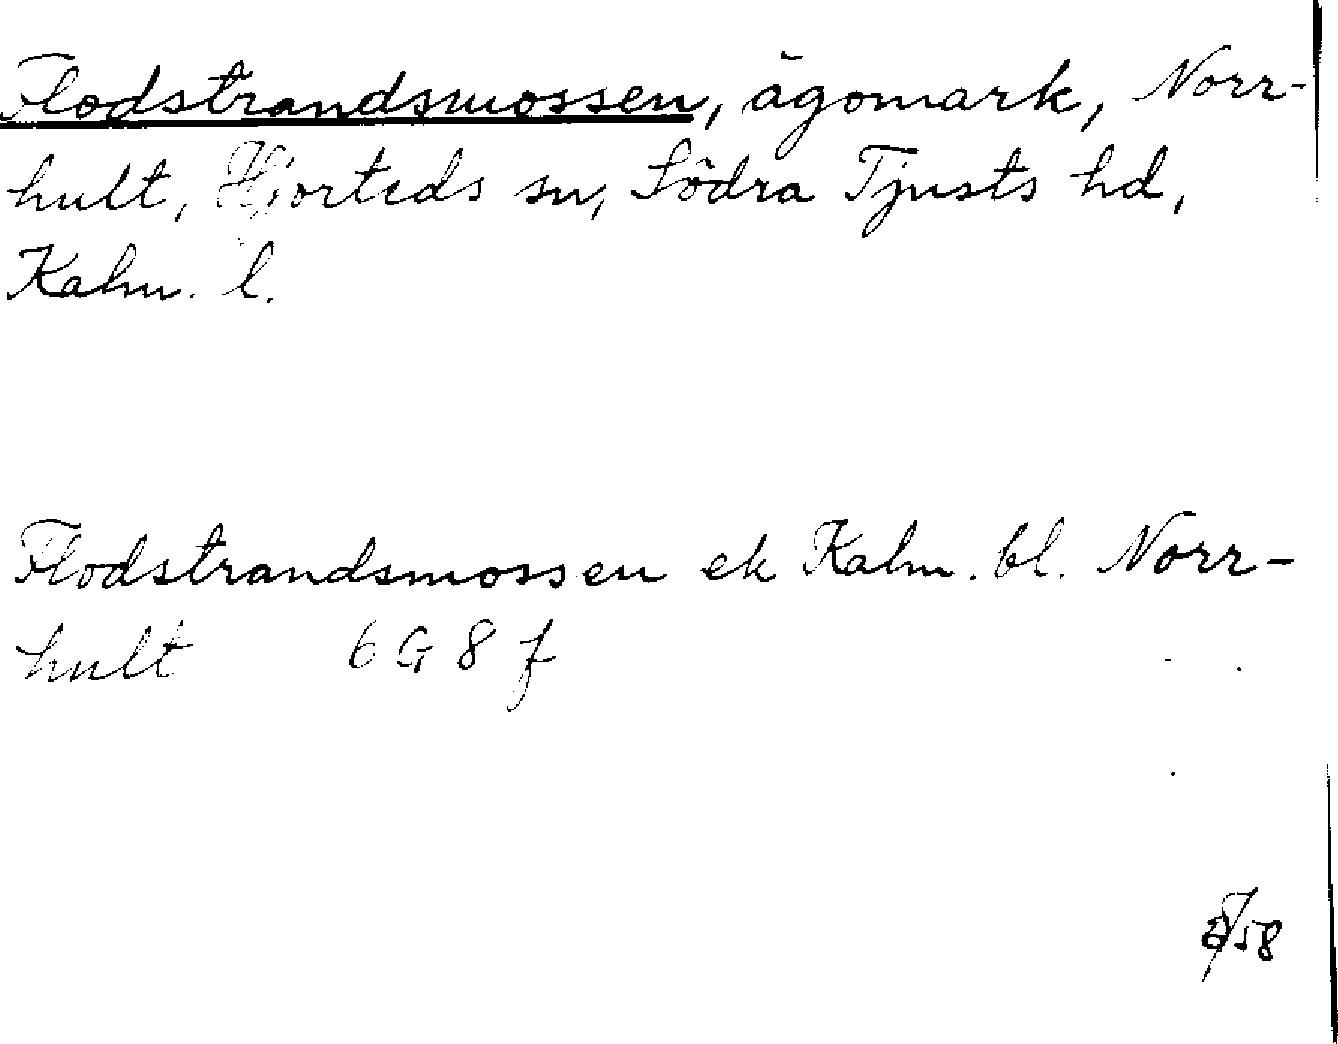 Flodstrandsmossen, ägomark, Norr-
hult, Hjorteds sn, Södra Tjusts hd,
Kalm. l.
Flodstrandsmossen ek Kalm. bl. Norr-
hult 6 G 8 f